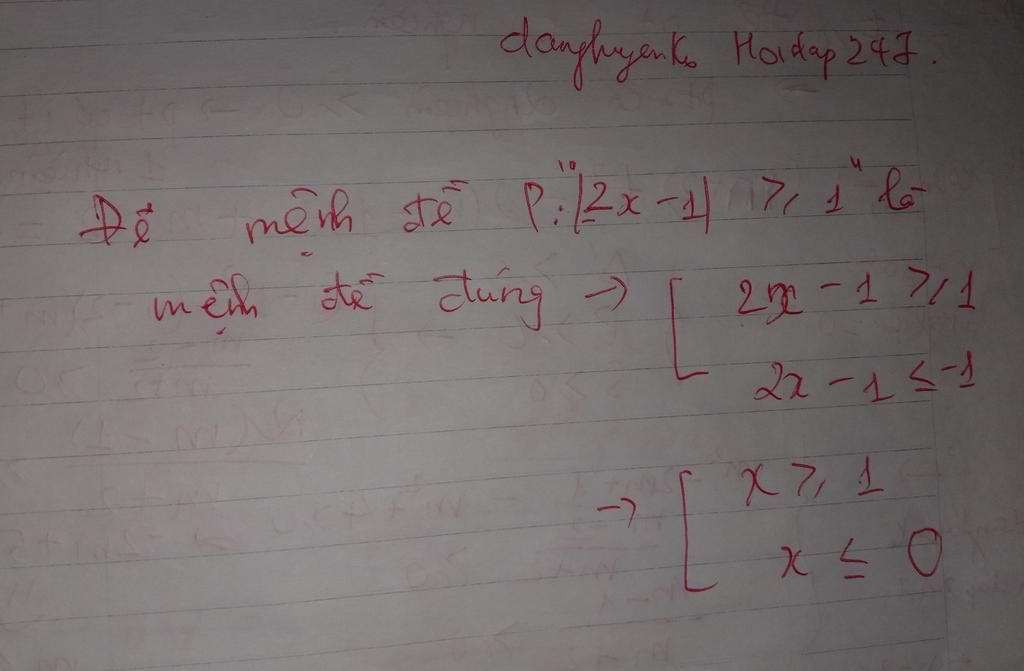 danghuyenko Hoidap247.
Để mệnh đề P: "|2x - 1| ≥ 1" là
mệnh đề đúng → [ 2x - 1 ≥ 1
2x - 1 ≤ -1
→ [ x ≥ 1
x ≤ 0